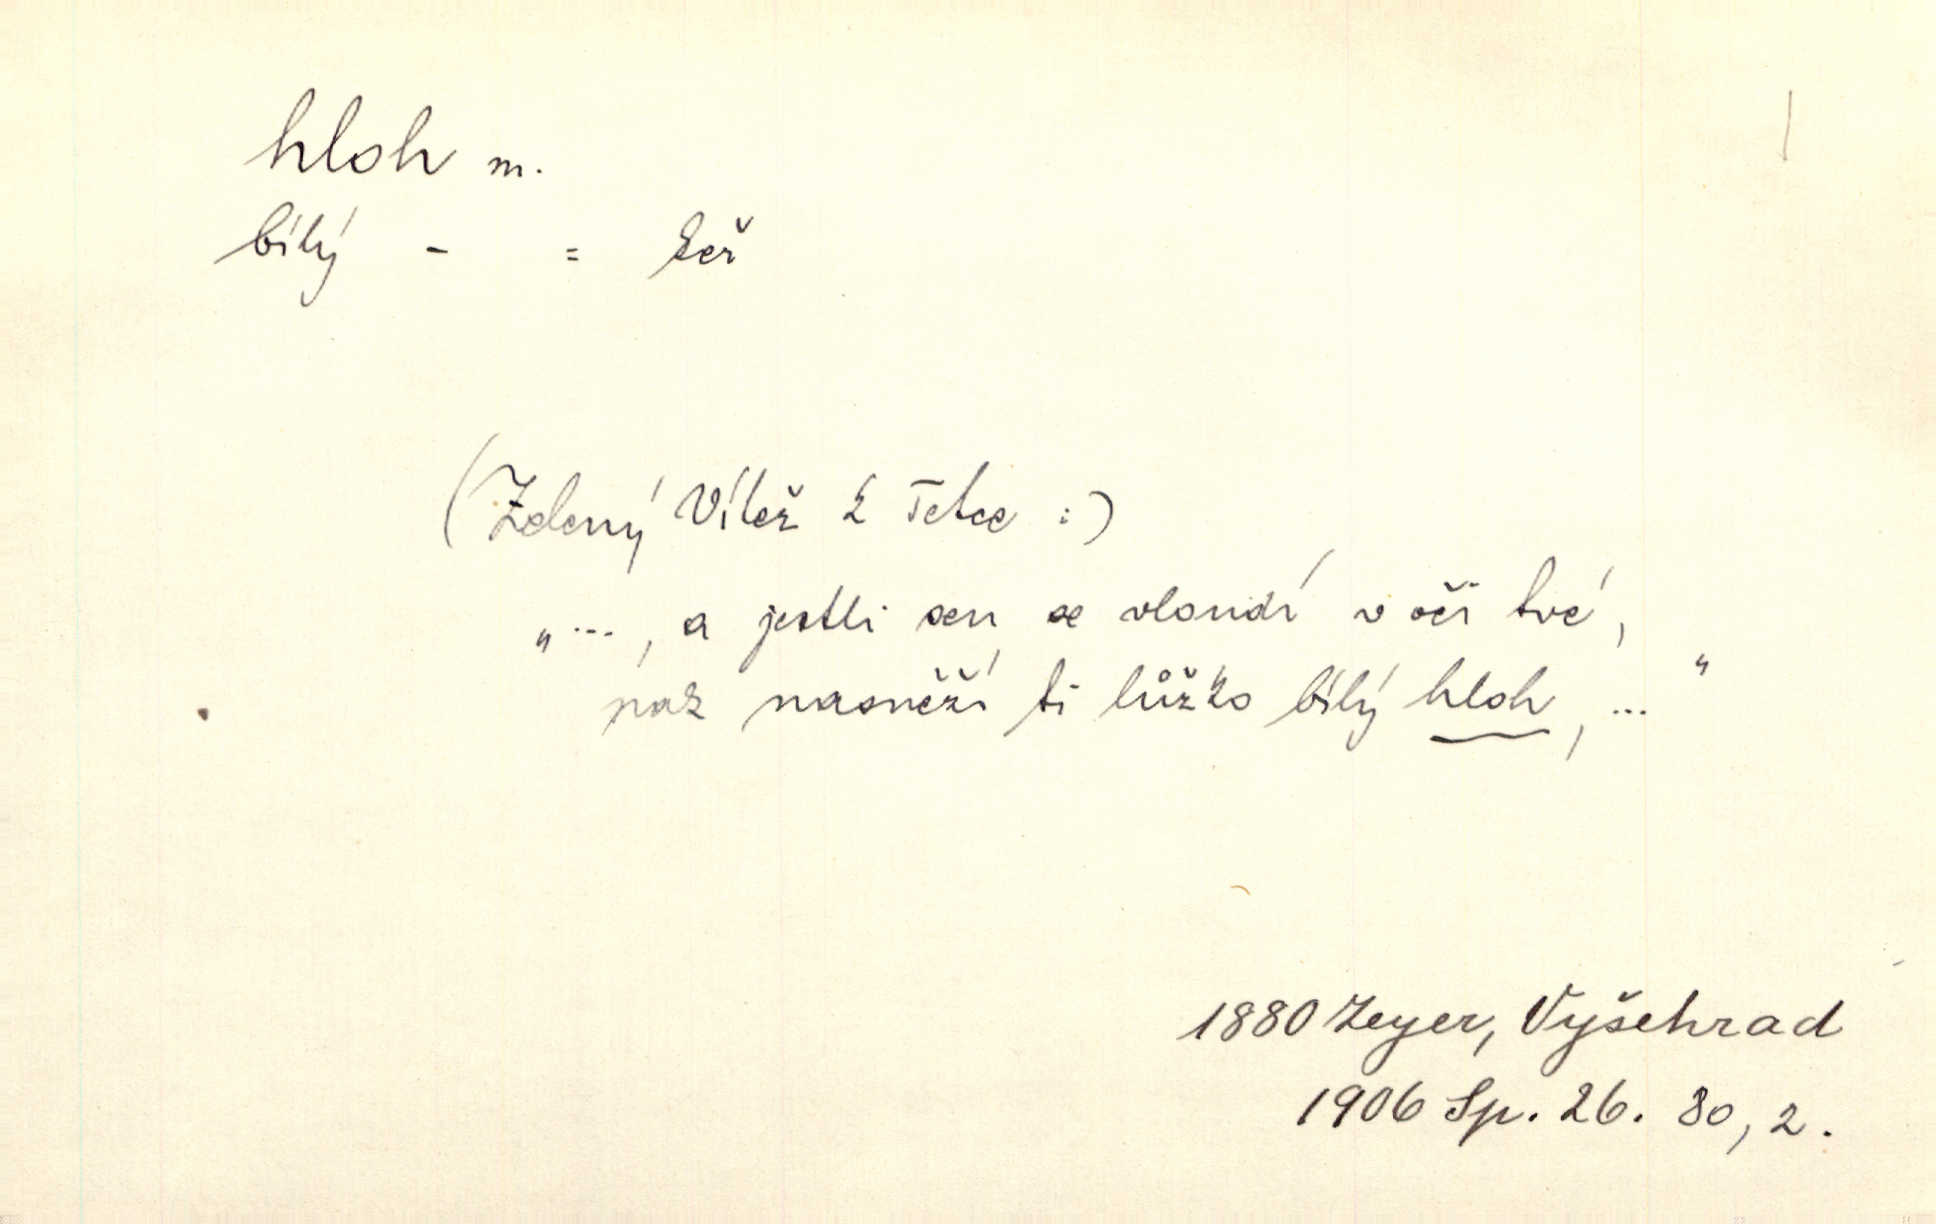 hloh m.
bílý - = keř
(Zelený Vítěz k Tetce :)
„..., a jestli sen se vloudí v oči tvé,
pak nasněží ti lůžko bílý hloh, ..."
1880 Zeyer, Vyšehrad
1906 Sp. 26. 80, 2.